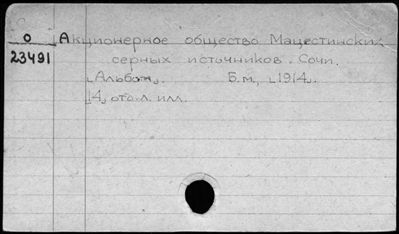 О Акционерное общество Мацестински
23491 серных источников. Сочи.
[Альбом]. Б.м., [1914].
[4] отд. л. илл.